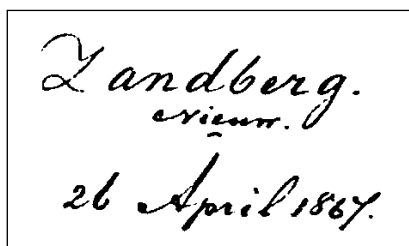 Zandberg.
Nieuw.
26 April 1867.